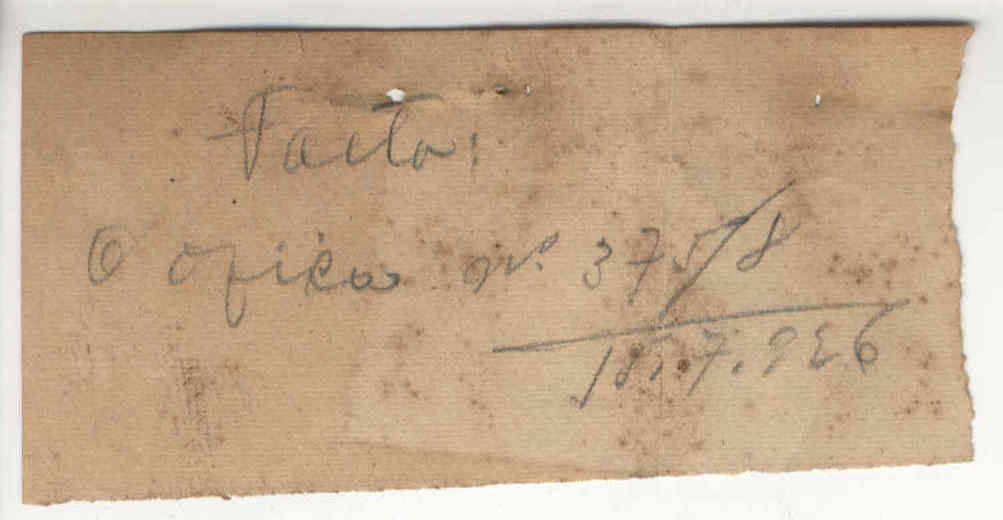 Falta:
O oficio nº 375/8
15.7.926